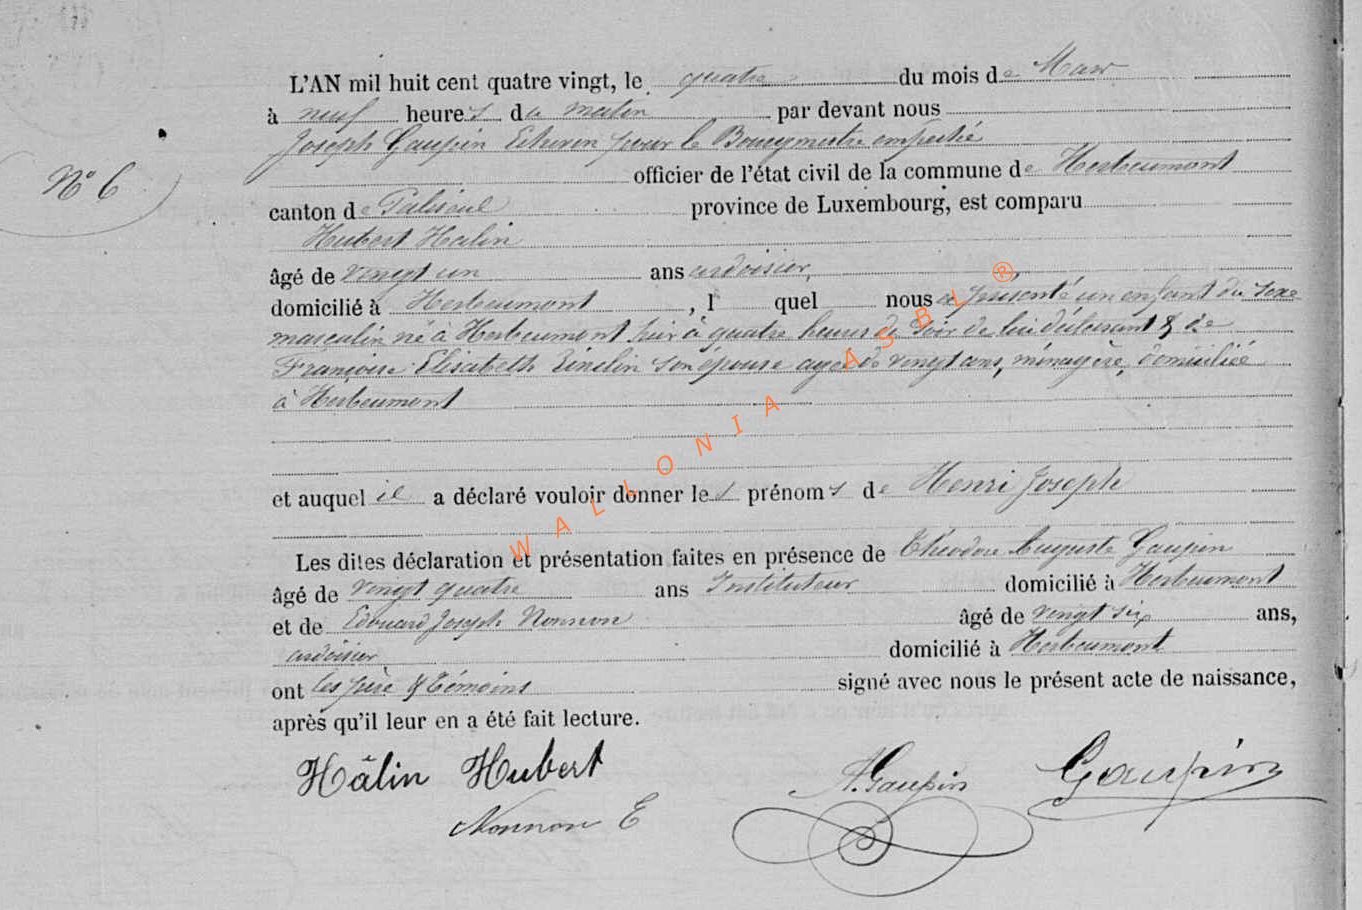 L'AN mil huit cent quatre vingt, le quatre du mois de Mars
à neuf heures du matin par devant nous
Joseph Gaupin Echevin pour le Bourgmestre empêché
N° 6
officier de l'état civil de la commune de Herbeumont
canton de Paliseul province de Luxembourg, est comparu
Hubert Halin
âgé de vingt un ans ardoisier,
domicilié à Herbeumont, l quel nous a présenté un enfant du sexe
masculin né à Herbeumont hier à quatre heures du soir de lui déclarant & de
Françoise Elisabeth son épouse agée de vingt ans, ménagère, domiciliée
à Herbeumont
et auquel il a déclaré vouloir donner les prénoms de Henri Joseph
Les dites déclaration et présentation faites en présence de Théodore Auguste Gaupin
âgé de vingt quatre ans Instituteur domicilié à Herbeumont
et de Edouard Joseph Nonnon âgé de vingt six ans,
ardoisier domicilié à Herbeumont
ont les père & témoins signé avec nous le présent acte de naissance,
après qu'il leur en a été fait lecture.
Hâlin Hubert A. Gaupin Gaupin
Nonnon E
WALLONIA ASBL ®